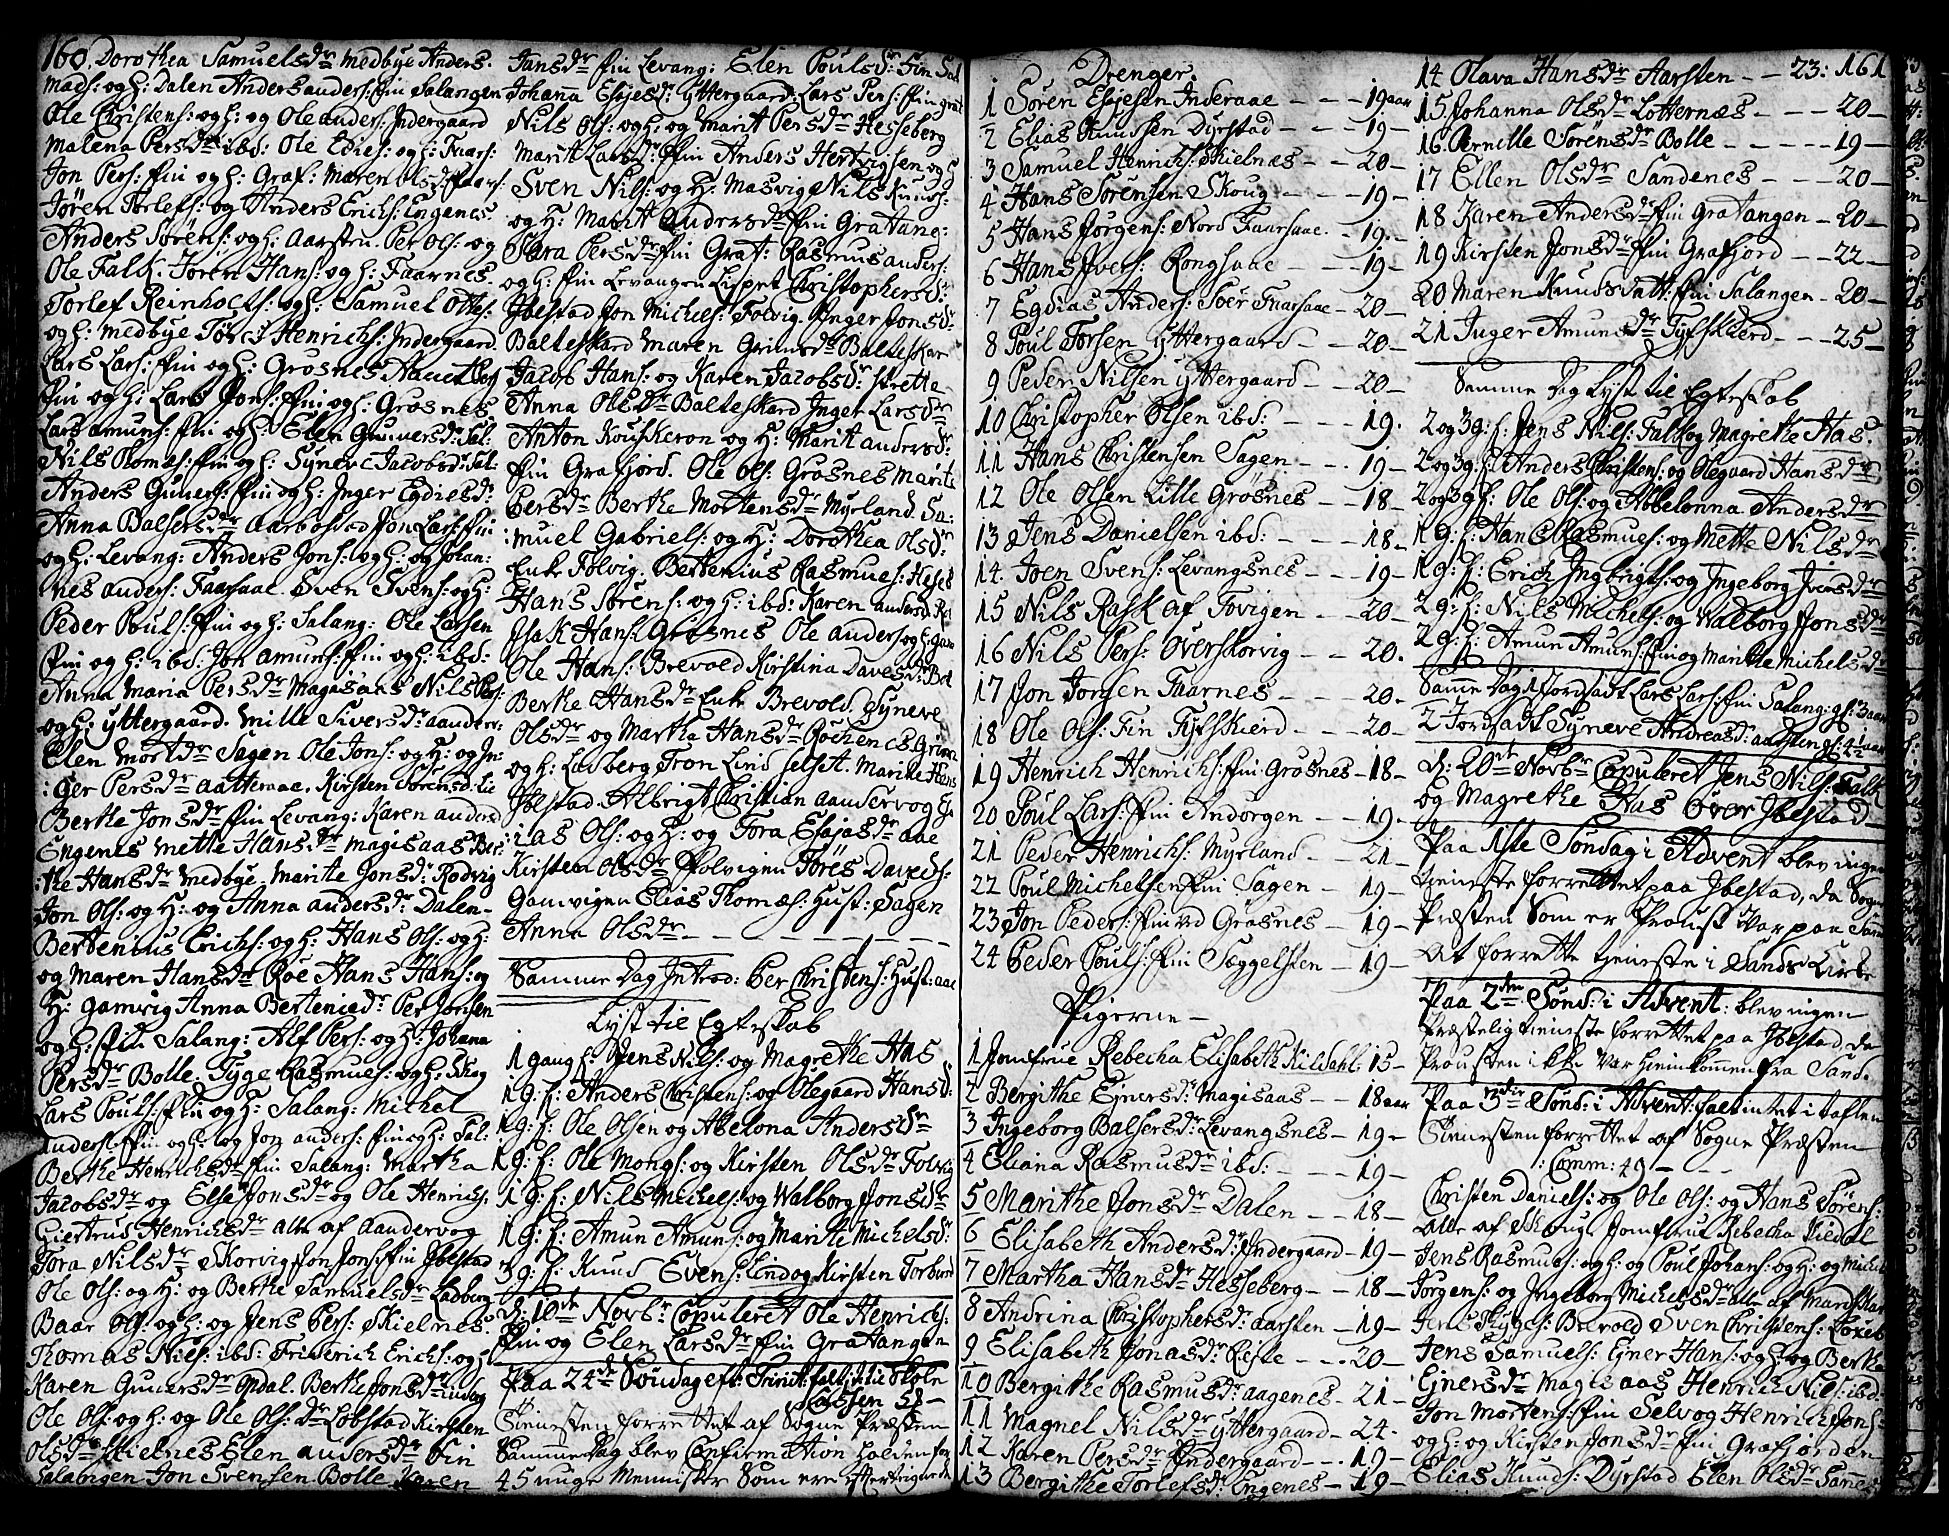 160. Dorothea Samuelsdr Medbye Anders
Mads: og H: Dalen Anders anders: fin Salangen
Ole Christens: og H: og Ole anders: Indergaard
Malena Persdr ibd: Ole Edies: og H: Faars:
Jon Pers: fin og H: Graf: Maren Olsdr Faars:
Jören Torlefs: og Anders Erichs: Engenes.
Anders Sörens: og H: Aarsten. Per Ols: og
Ole Falk. Joren Hans: og H: Faarnes.
Torlef Reinholts: og H: Samuel Ottes:
og H: Medbye Henrichs: Indergaard.
Lars Lars: fin og H: Grosnes
fin og H: Lars Jons: fin og H: Grosnes
Lars amuns: fin og H: Elen Gunersdr Sal:
Nils Tomes: fin og H: Synev Jacobsdr Sal:
Anders Guners: fin og H: Inger Egdiesdr
Anna Balsersdr Aarbostad Jon Lars: fin
og H: Levang: Anders Jons: og H: og Johan:
nes anders: Faarsaae. Sven Svens: og H:
Peder Pouls: fin og H: Salang: Ole Larsen
fin og H: ibd: Jon amuns: fin og H: ibd:
Anna Maria Persdr Magasaas Nils Pers:
og H: yttergaard. Mille Siversdr aander:
Elen Mortdr Sagen Ole Jons: og H: og In:
:ger Persdr aatteraae. Kirsten Sorensd: Lie
Berthe Jonsdr fin Levang: Karen andersd
Engenes Mette Hansdr Magisaas Ber:
:the Hansdr Medbye. Marite Jonsdr Rodvig
Jon Ols: og H: og Anna andersdr Dalen
Bertenius Erichs: og H: Hans Ols: og H:
og Maren Hansdr Roe Hans Hans: og
H: Gamvig Anna Berteniedr Per Jonsen
og H: fin Salang: Alf Pers: og H: Johana
Persdr Bolle. Tyge Rasmues: og H: Skog
Lars Pouls: fin og H: Salang: Michel
anders: fin og H: og Jon anders: fin og H: Sal:
Berthe Henrichsdr fin Salang: Martha
Jacobsdr og Else Jonsdr og Ole Henrichs:
Giertrus Henrichsdr alle af aandervog
Tora Nilsdr Skorvig Jon Jons: fin Ibestad
Ole Ols: og H: og Berthe Samuelsdr Ladberg
Baar Ols: og H: og Jens Pers: Skielnes.
Thomas Nils: ibd: Friderich Erichs: og H
Karen Gunersdr Opdal. Berthe Jonsdr
Ole Ols: og H: og Ole Ols: Lobstad Kirsten
Olsdr Skielnes Elen andersdr fin
Salangen Jon Svensen Bolle Karen
Jansdr fin Levang: Elen Poulsdr Fin Sal
Johana Esjesd: yttergaard Lars Pers: fin grat
Nils Ols: og H: og Marit Persdr Hesseberg
Marit Larsdr fin Anders Hertvigsen og H
Sven Nils: og H: Masvig Nils Knuds:
og H: Marit andersdr fin Gratang:
Sara Persdr fin Grat: Rasmus anders:
og H: fin Levangen Lispet Christophersdr
Ibestad Jon Michels: Folvig. Inger Jonsdr
Balteskard Maren Grimsdr Balteskar
Jacob Hans: og Karen Jacobsdr Strette
Anna Olsdr Balteskard Inger Larsdr
Anton Kouskeron og H: Marit andersdr
fin Grafjord. Ole Ols: Grosnes Marite
Persdr Berthe Mortensdr Myrland. Sa:
:muel Gabriels: og H: Dorothea Olsdr
Enke Folvig. Bertenius Rasmues: Hesse
Hans Sörens: og H: ibd: Karen andersd: Rei
Isak Hans: Grosnes Ole anders og H: Gam
Ole Hans: Brevold Kirstina Davesdr Bol
Berthe Hansdr Enke Brevold. Syneve
Olsdr og Martha Hansdr Rochenes. Grim
og H: Ladberg Tron Lind Marite Hans
Ibestad. Albrigt Christian aandervog El
:ias Ols: og H: og Tora Esajasdr aae
Kirsten Olsdr Folvigen Töres Davids:
Gamvigen Elias Thomæs: Hust: Sagen
Anna Olsdr
Samme Dag Introd: Per Christens: Hust: aae
Lyst til Egteskab
1 gang f: Jens Nils: og Magrethe Has
1 g: f: Anders Christens: og Olegaard Hansd:
1 g: f: Ole Olsen og Abelona Andersdr
1 g: f: Ole Mongs: og Kirsten Olsdr Folvig
1 g: f: Nils Michels: og Walborg Jonsdr
1 g: f: Amun Amuns: og Marite Michelsdr
3 g: f: Knud Evens: Lind og Kirsten Torburd
d: 10de Novbr Copuleret Ole Henrichs:
fin og Elen Larsdr fin Gratangen
Paa 24de Söndag eft: Trinit: falt
58
Tienesten forrettet af Sogne Præsten
Samme Dag blev Confirmation holden for
45 unge Mennisker Som ere
Drenger.
1 Soren Esjesen Inderaae - - - 19 aar
2 Elias Knudsen Dyrstad - - - 19 -
3 Samuel Henrichs: Skielnæs - - 20 -
4 Hans Sörensen Skoug - - - 19 -
5 Hans Jörgens: Nord Faarsaae. - 19. -
6 Hans Ivers: Rongsaae - - - 19 -
7 Egdias Anders: Soer Faarsaae - 20 -
8 Poul Torsen yttergaard - - - 20 -
9 Peder Nilsen yttergaard - - 20 -
10 Christopher Olsen ibd: - - - 19.
11 Hans Christensen Sagen - - - 19 -
12 Ole Olsen Lille Grosnes - - - 18 -
13 Jens Danielsen ibd: - - - 18 -
14. Joen Svens: Levangsnes - - 19 -
15 Nils Rask af Tovigen - - - 20 -
16 Nils Pers: Overskorvig - - - 20.
17 Jon Jorgen Faarnes - - - 20 -
18 Ole Ols: Fin Tyfskierd - - - 20 -
19 Henrich Henrichs: fin Grosnes - 18 -
20 Poul Lars: fin Andorgen - - 19 -
21 Peder Henrichs: Myrland - - 21 -
22 Poul Michelsen fin Sagen - - 19 -
23 Jon Peders: fin ved Grasnes - 19 -
24 Peder Pouls: fin Soggelsten - - 19 -
Pigerne -
1 Jomfrue Rebecha Elisabeth Kildahl: 15 -
2 Bergithe Ejnersdr Magisaas - - 18 aar
3 Ingeborg Balsersdr Levangsnes - 19 -
4 Eliana Rasmusdr ibd: - - - 19 -
5 Marithe Jonsdr Dalen - - 18 -
6 Elisabeth Andersdr Indergaard - 19 -
7 Martha Hansdr Hesseberg - - 18 -
8 Andrina Christophersdr aarsten - 19 -
9 Elisabeth Jonasdr Reste - - - 20 -
10 Bergithe Rasmusdr aagenes - 21 -
11 Magnel Nilsdr yttergaard - 24.
12 Karen Persdr Indergaard - - 19 -
13 Bergithe Torlefsdr Engenes - 19 -
14 Olava Hansdr Aarsten - - 23: 161
15. Johanna Olsdr Lotternæs - - - 20 -
16. Pernille Sörensdr Bolle - - - - 19 -
17 Ellen Olsdr Sandenes - - - 20 -
18 Karen Andersdr fin Gratangen - 20 -
19 Kirsten Jonsdr fin Grafjord - - 22 -
20 Maren Knudsdatt: fin Salangen - 20 -
21 Inger Amunsdr Tyfskierd - - - 25 -
Samme Dag Lyst til Egteskab
2 og 3 g: f: Jens Nils: Falk og Magrethe Has.
2 og 3 g: f: Anders Christens: og Olegaard Hansdr
2 og 3 g: f: Ole Ols: og Abbelonna Andersdr
1 g: f: Hans Rasmues: og Mette Nilsdr
1 g: f: Erich Ingbrigts: og Ingeborg Iversdr
2 g: f: Nils Michels: og Walborg Jonsdr
2 g: f: Amun Amuns: fin og Marithe Michelsdr
Samme Dag 1 Jordfadt Lars Lars: fin Salang: gl: 3 aar
2 Jordfadt Syneve Andreasdr: aarsten gl: 4½ aar
d: 20de Novbr Copuleret Jens Nils: Falk
og Magrethe Has Over Ibestad
Paa 1ste Söndag i Advent blev ingen
tieneste forrettet paa Ibestad, da Sogne
Præsten Som er Proust Var paa Sand
At forrette tieneste i Sands Kirke
Paa 2den Sönd: i Advent: blev ingen
Præstelig tieneste forrettet paa Ibestad da
Prousten ikke var hiemkommen fra Sand.
Paa 3die Sönd: i Advent: falt intet i taflen
Tienesten forrettet af Sogne Præsten
: Comm: 49 -
Christen Daniels: og Ole Ols: og Hans Sörens:
alle af Skoug. Jomfrue Rebecha Kildal
Jens Rasmus: og H: og Poul Johans: og H: og Michel
Jörgens: og Ingeborg Michelsdr alle af
Jens Brevold Sven Christens:
Jens Samuels: Ejner Hans: og H: og Berthe
Ejnersdr Magisaas Henrich Nils: ibd:
Jon Mortens: fin Selvog Henrich Jons:
og H: og Kirsten Jonsdr fin Grafjorden
Elias Knuds: Dyrstad Elen Olsdr